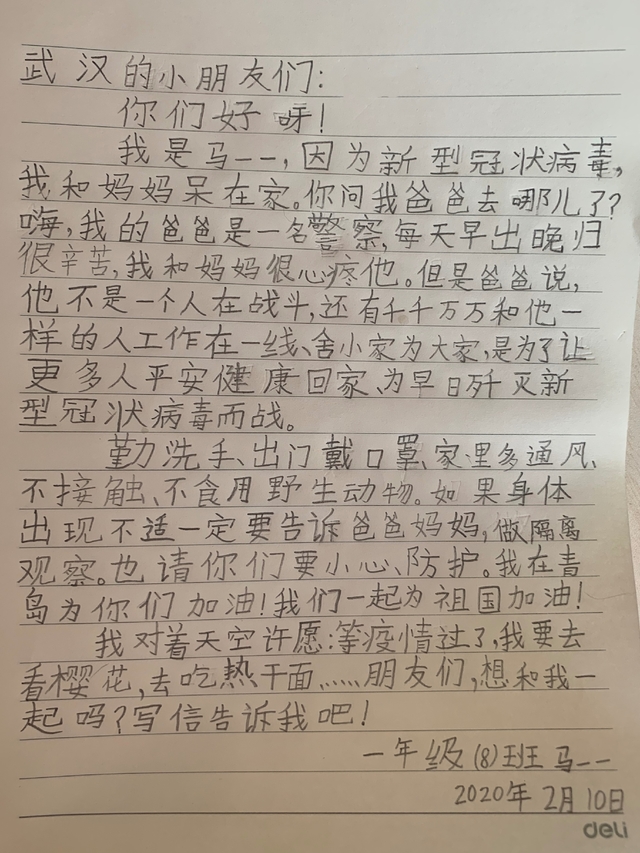 武汉的小朋友们:
你们好呀!
我是马一一,因为新型冠状病毒,
我和妈妈呆在家。你问我爸爸去哪儿了?
嗨,我的爸爸是一名警察,每天早出晚归
很辛苦,我和妈妈很心疼他。但是爸爸说,
他不是一个人在战斗,还有千千万万和他一
样的人工作在一线、舍小家为大家,是为了让
更多人平安健康回家、为早日歼灭新
型冠状病毒而战。
勤洗手、出门戴口罩、家里多通风、
不接触、不食用野生动物。如果身体
出现不适一定要告诉爸爸妈妈,做隔离
观察。也请你们要小心、防护。我在青
岛为你们加油!我们一起为祖国加油!
我对着天空许愿:等疫情过了,我要去
看樱花,去吃热干面……朋友们,想和我一
起吗?写信告诉我吧!
一年级(8)班马一一
2020年2月10日
deli